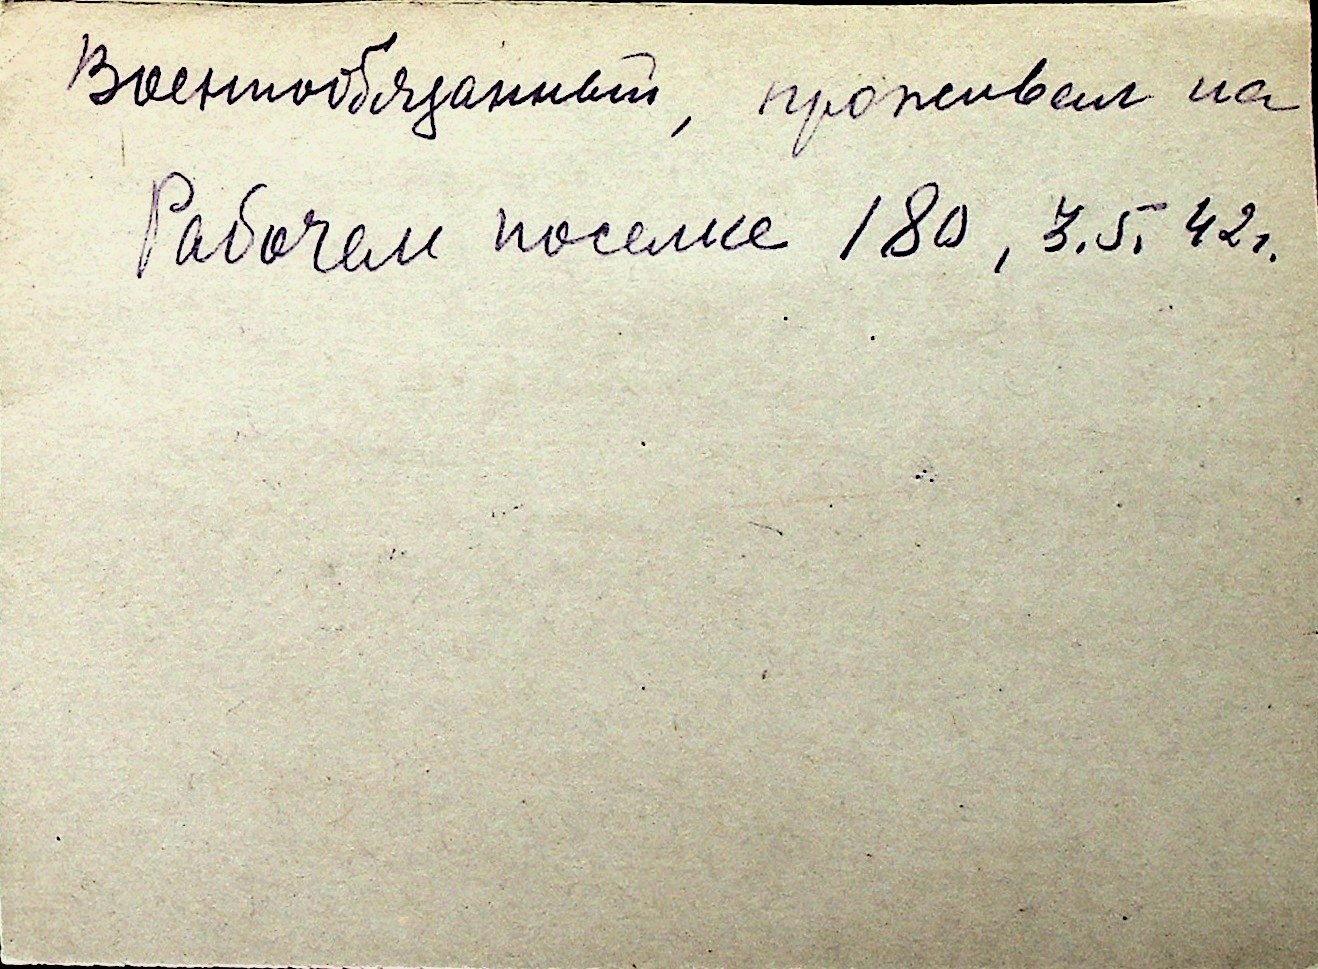 Военнообязанный, проживал на
Рабочем поселке 180, 7.5.42г.